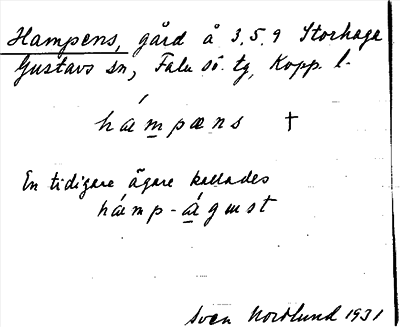 Hampens, gård å 3.5.9 Storhaga
Gustavs sn, Falu sö. tg, Kopp. l.
hámpæns †
En tidigare ägare kallades
hámp-águst
Sven Nordlund 1931